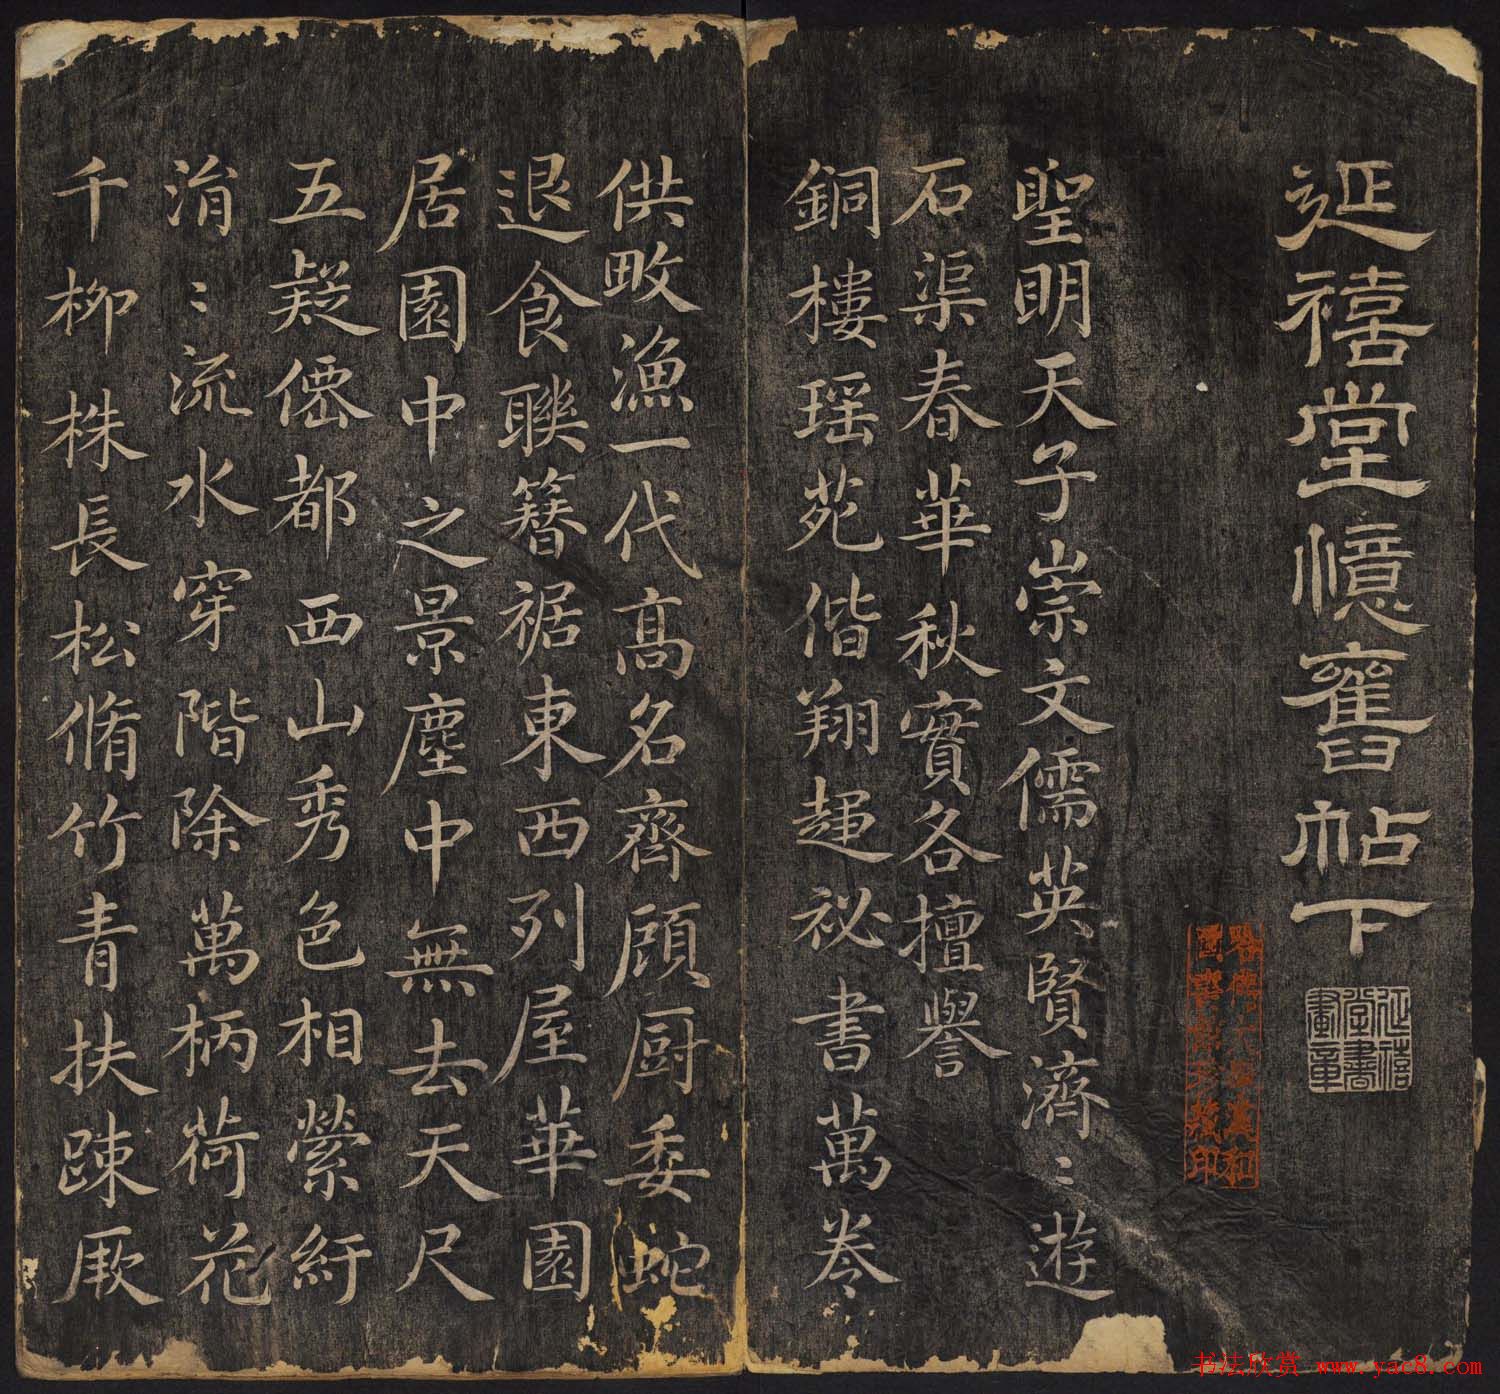 延禧堂憶舊帖下
延禧堂書畫章
聖明天子崇文儒英賢濟〻遊
石渠春華秋實各擅譽
銅樓瑶苑偕翔趨祕書萬卷
供畋漁一代高名齊顧厨委蛇
退食聯簪裾東西列屋華園
居園中之景塵中無去天尺
五疑僊都西山秀色相縈紆
涓〻流水穿階除萬柄荷花
千柳株長松脩竹青扶踈厥
书法欣赏 www.yac8.com